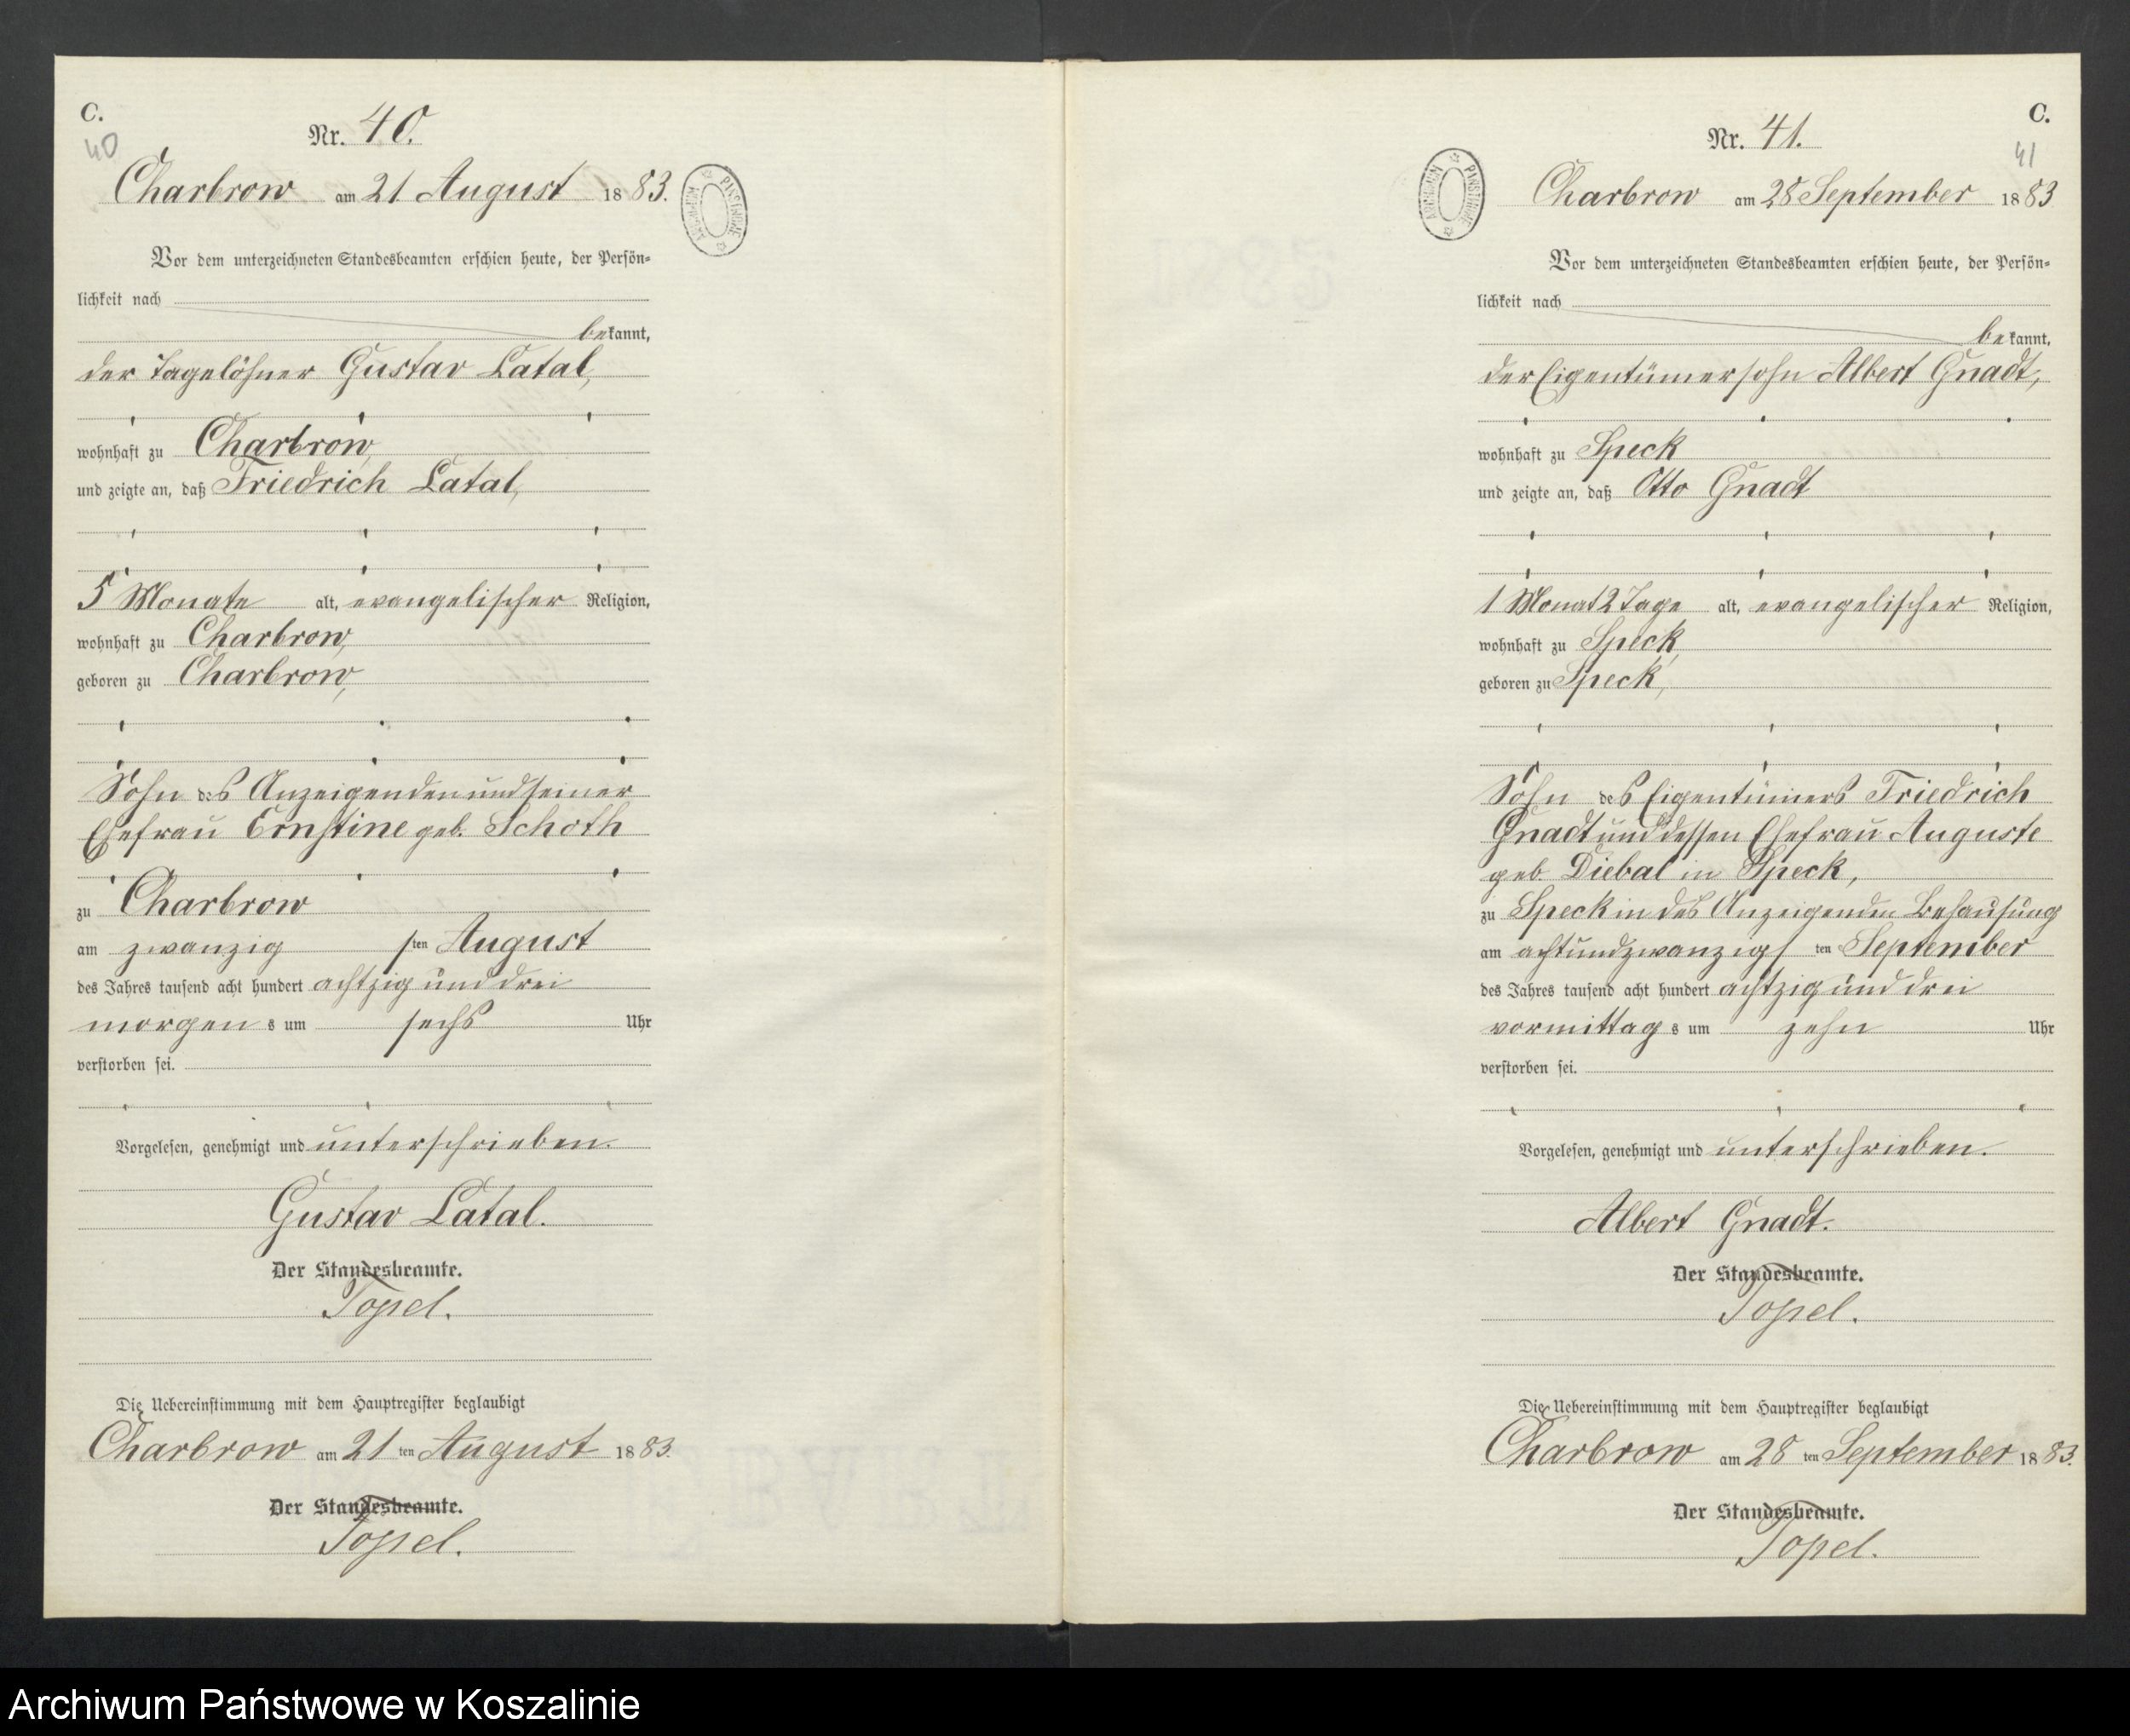 C.
40
Nr. 40.
Charbrow am 21 August 1883.
Vor dem unterzeichneten Standesbeamten erschien heute, der Persön-
lichkeit nach
bekannt,
der Tagelöhner Gustav Latal,
wohnhaft zu Charbrow,
und zeigte an, daß Friedrich Latal,
5 Monate alt, evangelischer Religion,
wohnhaft zu Charbrow,
geboren zu Charbrow,
Sohn des Anzeigenden und seiner
Ehefrau Ernstine geb. Schoth
zu Charbrow
am zwanzigsten August
des Jahres tausend acht hundert achtzig und drei
morgens um sechs Uhr
verstorben sei.
Vorgelesen, genehmigt und unterschrieben.
Gustav Latal.
Der Standesbeamte.
Topel.
Die Uebereinstimmung mit dem Hauptregister beglaubigt
Charbrow am 21 ten August 1883.
Der Standesbeamte.
Topel.
ARCHIWUM PAŃSTWOWE
C.
41
Nr. 41.
Charbrow am 28 September 1883
Vor dem unterzeichneten Standesbeamten erschien heute, der Persön-
lichkeit nach
bekannt,
der Eigentümersohn Albert Gnadt,
wohnhaft zu Speck
und zeigte an, daß Otto Gnadt
1 Monat 2 Tage alt, evangelischer Religion,
wohnhaft zu Speck,
geboren zu Speck,
Sohn des Eigentümers Friedrich
Gnadt und dessen Ehefrau Auguste
geb. Diebal in Speck,
zu Speck in des Anzeigenden Behausung
am achtundzwanzigsten September
des Jahres tausend acht hundert achtzig und drei
vormittags um zehn Uhr
verstorben sei.
Vorgelesen, genehmigt und unterschrieben.
Albert Gnadt.
Der Standesbeamte.
Topel.
Die Uebereinstimmung mit dem Hauptregister beglaubigt
Charbrow am 28 ten September 1883.
Der Standesbeamte.
Topel.
ARCHIWUM PAŃSTWOWE
Archiwum Państwowe w Koszalinie